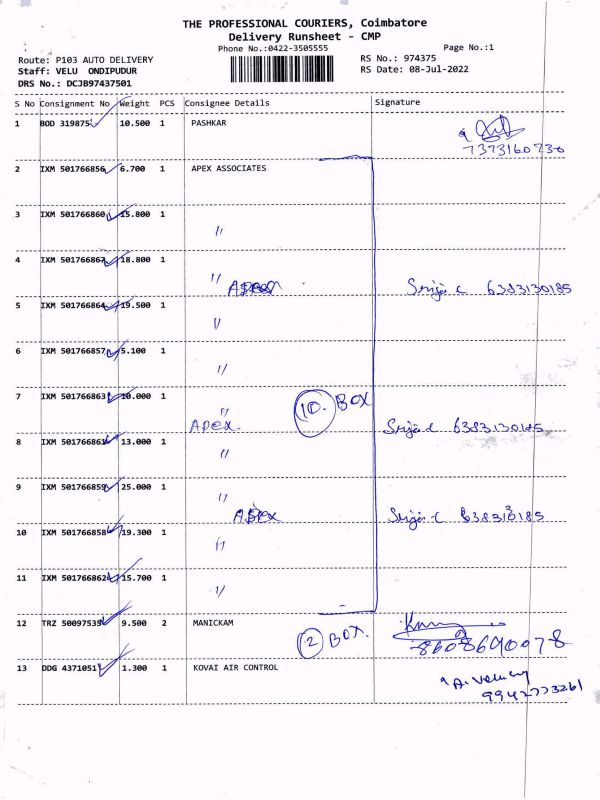 THE PROFESSIONAL COURIERS, Coimbatore
Delivery Runsheet - CMP
Phone No.:0422-3505555
Page No.:1
Route: P103 AUTO DELIVERY
RS No.: 974375
Staff: VELU ONDIPUDUR
RS Date: 08-Jul-2022
DRS No.: DCJB97437501
S No Consignment No Weight PCS Consignee Details Signature
1 BOD 319875 10.500 1 PASHKAR
7373160730
2 IXM 501766856 6.700 1 APEX ASSOCIATES
3 IXM 501766860 15.800 1
"
4 IXM 501766867 18.800 1
"
APEX Srija C 6383130185
5 IXM 501766864 19.500 1
"
6 IXM 501766857 5.100 1
"
7 IXM 501766863 10.000 1 10. BOX
"
APex. Srija C 6383130185
8 IXM 501766861 13.000 1
"
9 IXM 501766859 25.000 1
"
APEX Srija C
10 IXM 501766858 19.300 1
"
11 IXM 501766862 15.700 1
"
12 TRZ 50097535 9.500 2 MANICKAM
2 BOX.
8608690078
13 DDG 4371051 1.300 1 KOVAI AIR CONTROL
9942773261